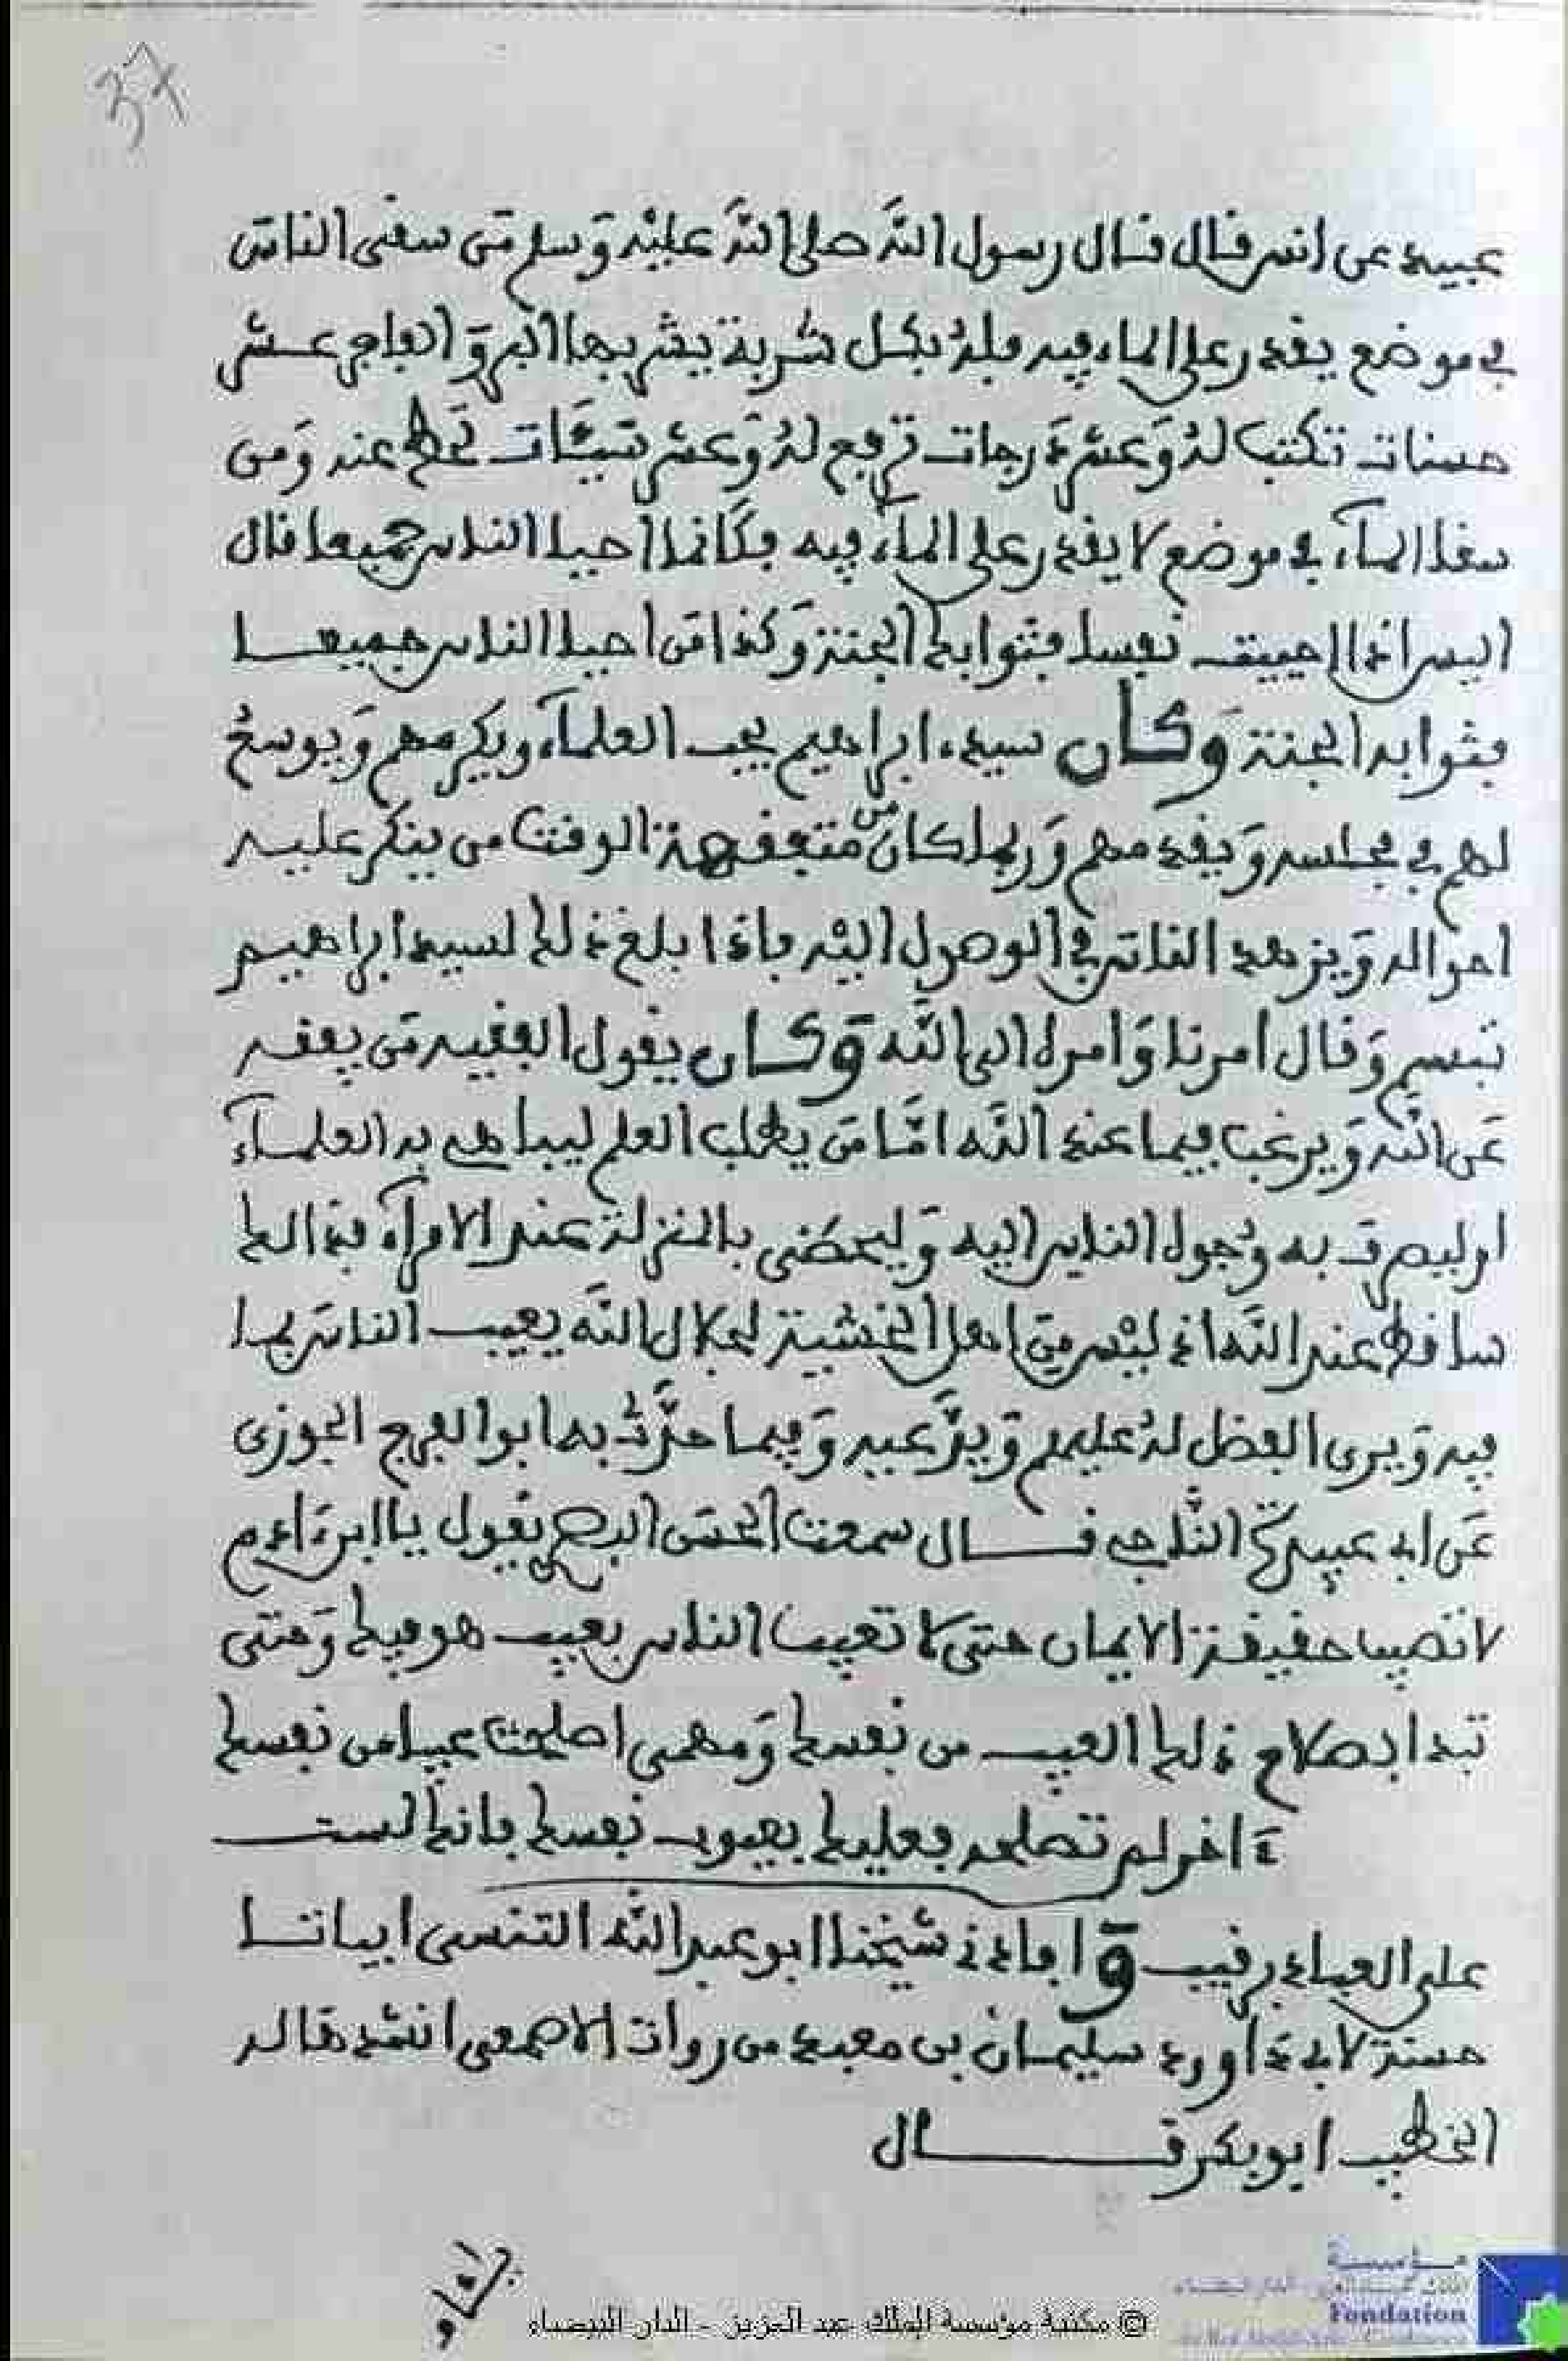 37
عبيد عن انس قال قال رسول الله صلى الله عليه وسلم من سقى الناس
في موضع يقدر على الماء فيه فله بكل شربة يشربها البر والفاجر عشر
حسنات تكتب له وعشر درجات ترفع له وعشر سيئات تحط عنه ومن
سقا الماء في موضع لا يقدر على الماء فيه فكانما احيا الناس جميعا قال
اليس اذا احييت نفسا فثوابك الجنة وكذا من احيا الناس جميعا
فثوابه الجنة وكان سيدي ابراهيم يحب العلماء ويكرمهم ويوسع
لهم في مجلسه ويقدمهم وربما كان من متفقهة الوقت من ينكر عليه
احواله ويزهد الناس في الوصول اليه فاذا بلغ ذلك لسيد ابراهيم
تبسم وقال امرنا وامره الى الله وكان يقول الفقيه من يفقه
عن الله ويرغب فيما عند الله اما من يطلب العلم ليباهي به العلماء
او ليصرف به وجوه الناس اليه وليحضى بالمنزلة عند الامراء فذالك
ساقط عند الله اذ ليس من اهل الخشية لجلال الله يعيب الناس بما
فيه ويرى الفضل له عليهم ويدعيه وفيما حدث به ابو الفرج الجوزى
عن ابي عبيدة الناجي قال سمعت الحسن البصري يقول يا ابن ءادم
لا تصيب حقيقة الايمان حتى لا تعيب الناس بعيب هو فيك وحتى
تبدا بصلاح ذلك العيب من نفسك ومهمى اصلحت عيبا من نفسك
ءاخر لم تصلحه فعليك بعيوب نفسك فانك لست
على العباد برقيب وافادني شيخنا ابو عبد الله التنسى ابياتا
حسنة لابي داوود سليمان بن معبد من روات الاصمعى انشدها له
الخطيب ابو بكر قال
© مكتبة مؤسسة الملك عبد العزيز - الدار البيضاء
مؤسسة
Fondation